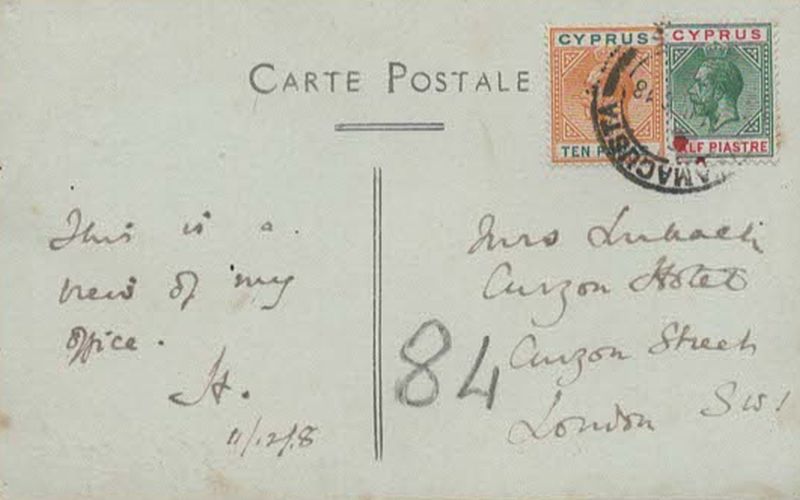 CARTE POSTALE
CYPRUS
TEN P
CYPRUS
HALF PIASTRE
FAMAGUSTA
This is a
view of my
office.
H.
11/12/18
84
Mrs
Curzon Hotel
Curzon Street
London SW1